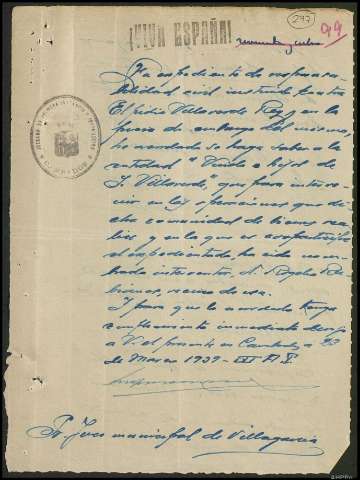 247
¡VIVA ESPAÑA!
99
En expediente de responsa-
bilidad civil instruido contra
Elpidio Villaverde Rey y en la
pieza de embargo del mismo,
he acordado se haga saber a la
entidad "Viuda e hijos de
J. Villaverde", que para interve-
nir en las operaciones que di-
cha comunidad de bienes rea-
lice y en la que es copartícipe
el expedientado, ha sido nom-
brado interventor, D. Rogelio
vecino de esa.
Y para que lo acordado tenga
cumplimiento inmediato dirijo
a V. el presente en Cambados a
de Marzo 1939 - III A. T.
Sr. Juez municipal de Villagarcía